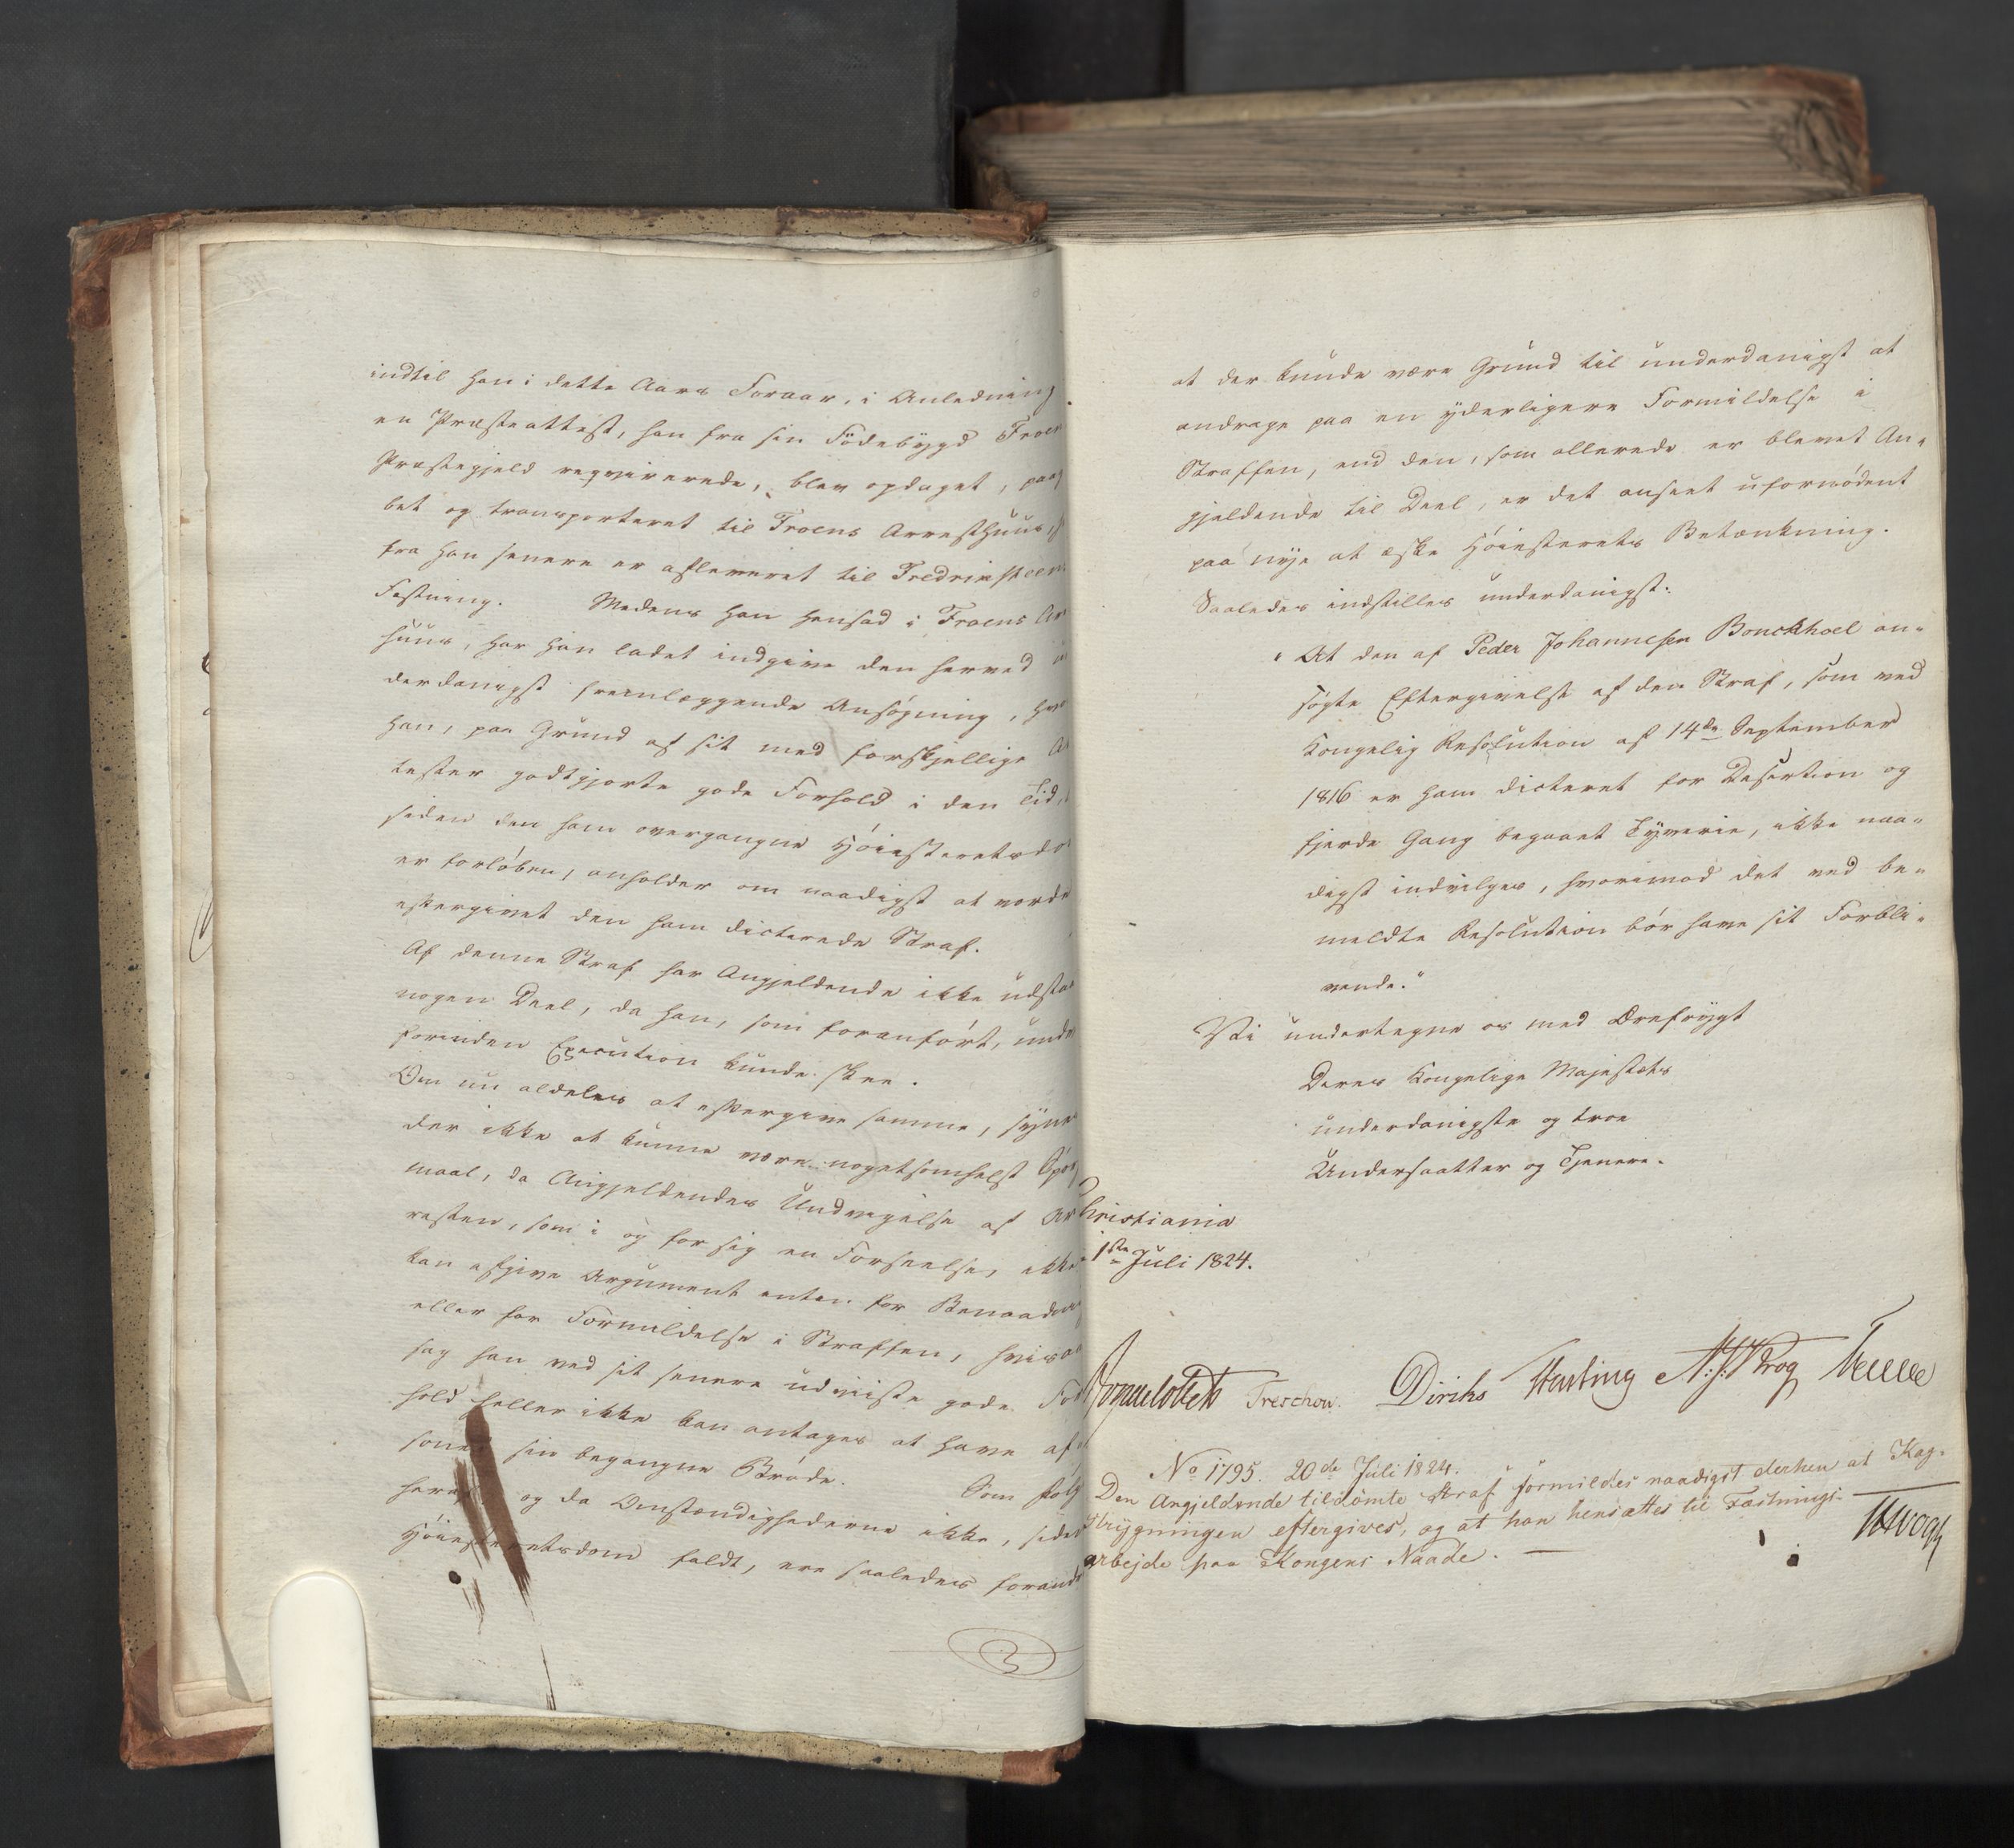 indtil han i dette Aars Foraar, i Anledning
en Præsteattest, han fra sin Födebygd Froen
Præstegjeld reqvirerede, blev opdaget, paag
bet og transporteret til Froens Arresthuus,
fra han senere er afleveret til Fredriksteens
Fæstning. Medens han hensad i Froens Ar
huus, har han ladet indgive den herved un
derdanigst fremlæggende Ansögning, hvo
han, paa Grund af sit med forskjellige At
tester godtgjorte gode Forhold i den Tid,
siden den ham overgangne Höiesteretsdo
er forlöben, anholder om naadigst at vorde
eftergivet den ham dicterede Straf.
Af denne Straf har Angjeldende ikke udsta
nogen Deel, da han, som foranfört, undv
forinden Execution kunde skee.
Om nu aldeles at eftergive samme, synes
der ikke at kunne være nogetsomhelst Spörs
maal, da Angjeldendes Undvigelse af Ar
resten, som i og for sig en Forseelse, ikke
kan afgive Argument enten for Benaadning
eller for Formildelse i Straffen, hvisaa
sag han ved sit senere udviiste gode For
hold heller ikke kan antages at have af
sonet sin begangne Bröde. Som Fölg
heraf og da Omstændighederne ikke, siden
Höiesteretsdom faldt, ere saaledes forandr
at der kunde være Grund til underdanigst at
andrage paa en yderligere Formildelse i
Straffen, end den, som allerede er blevet An-
gjeldende til Deel, er det anseet ufornödent
paa nye at æske Höiesterets Betænkning.
Saaledes indstilles underdanigst:
"At den af Peder Johannesen Bonckhoel an-
sögte Eftergivelse af den Straf, som ved
Kongelig Resolution af 14de September
1816 er ham dicteret for Desertion og
fjerde Gang begaaet Tyverie, ikke naa-
digst indvilges, hvorimod det ved be-
meldte Resolution bör have sit Forbli-
vende."
Vi undertegne os med Ærefrygt
Deres Kongelige Majestæts
underdanigste og troe
Undersaatter og Tjenere.
Christiania
1ste Juli 1824.
Sommerhielm Treschow. Diriks Hasting A. J. Krog
No 1795. 20de Juli 1824.
Den Angjeldende tildömte Straf formildes naadigst derhen at Kag-
strygningen eftergives, og at han hensættes til Fæstnings-
arbejde paa Kongens Naade. —
JHVogt